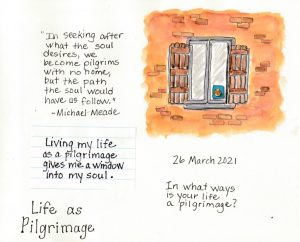 "In seeking after
what the soul
desires, we
become pilgrims
with no home,
but the path
the soul would
have us follow."
-Michael Meade
Living my life
as a pilgrimage
gives me a window
into my soul.
Life as
Pilgrimage
26 March 2021
In what ways
is your life
a pilgrimage?